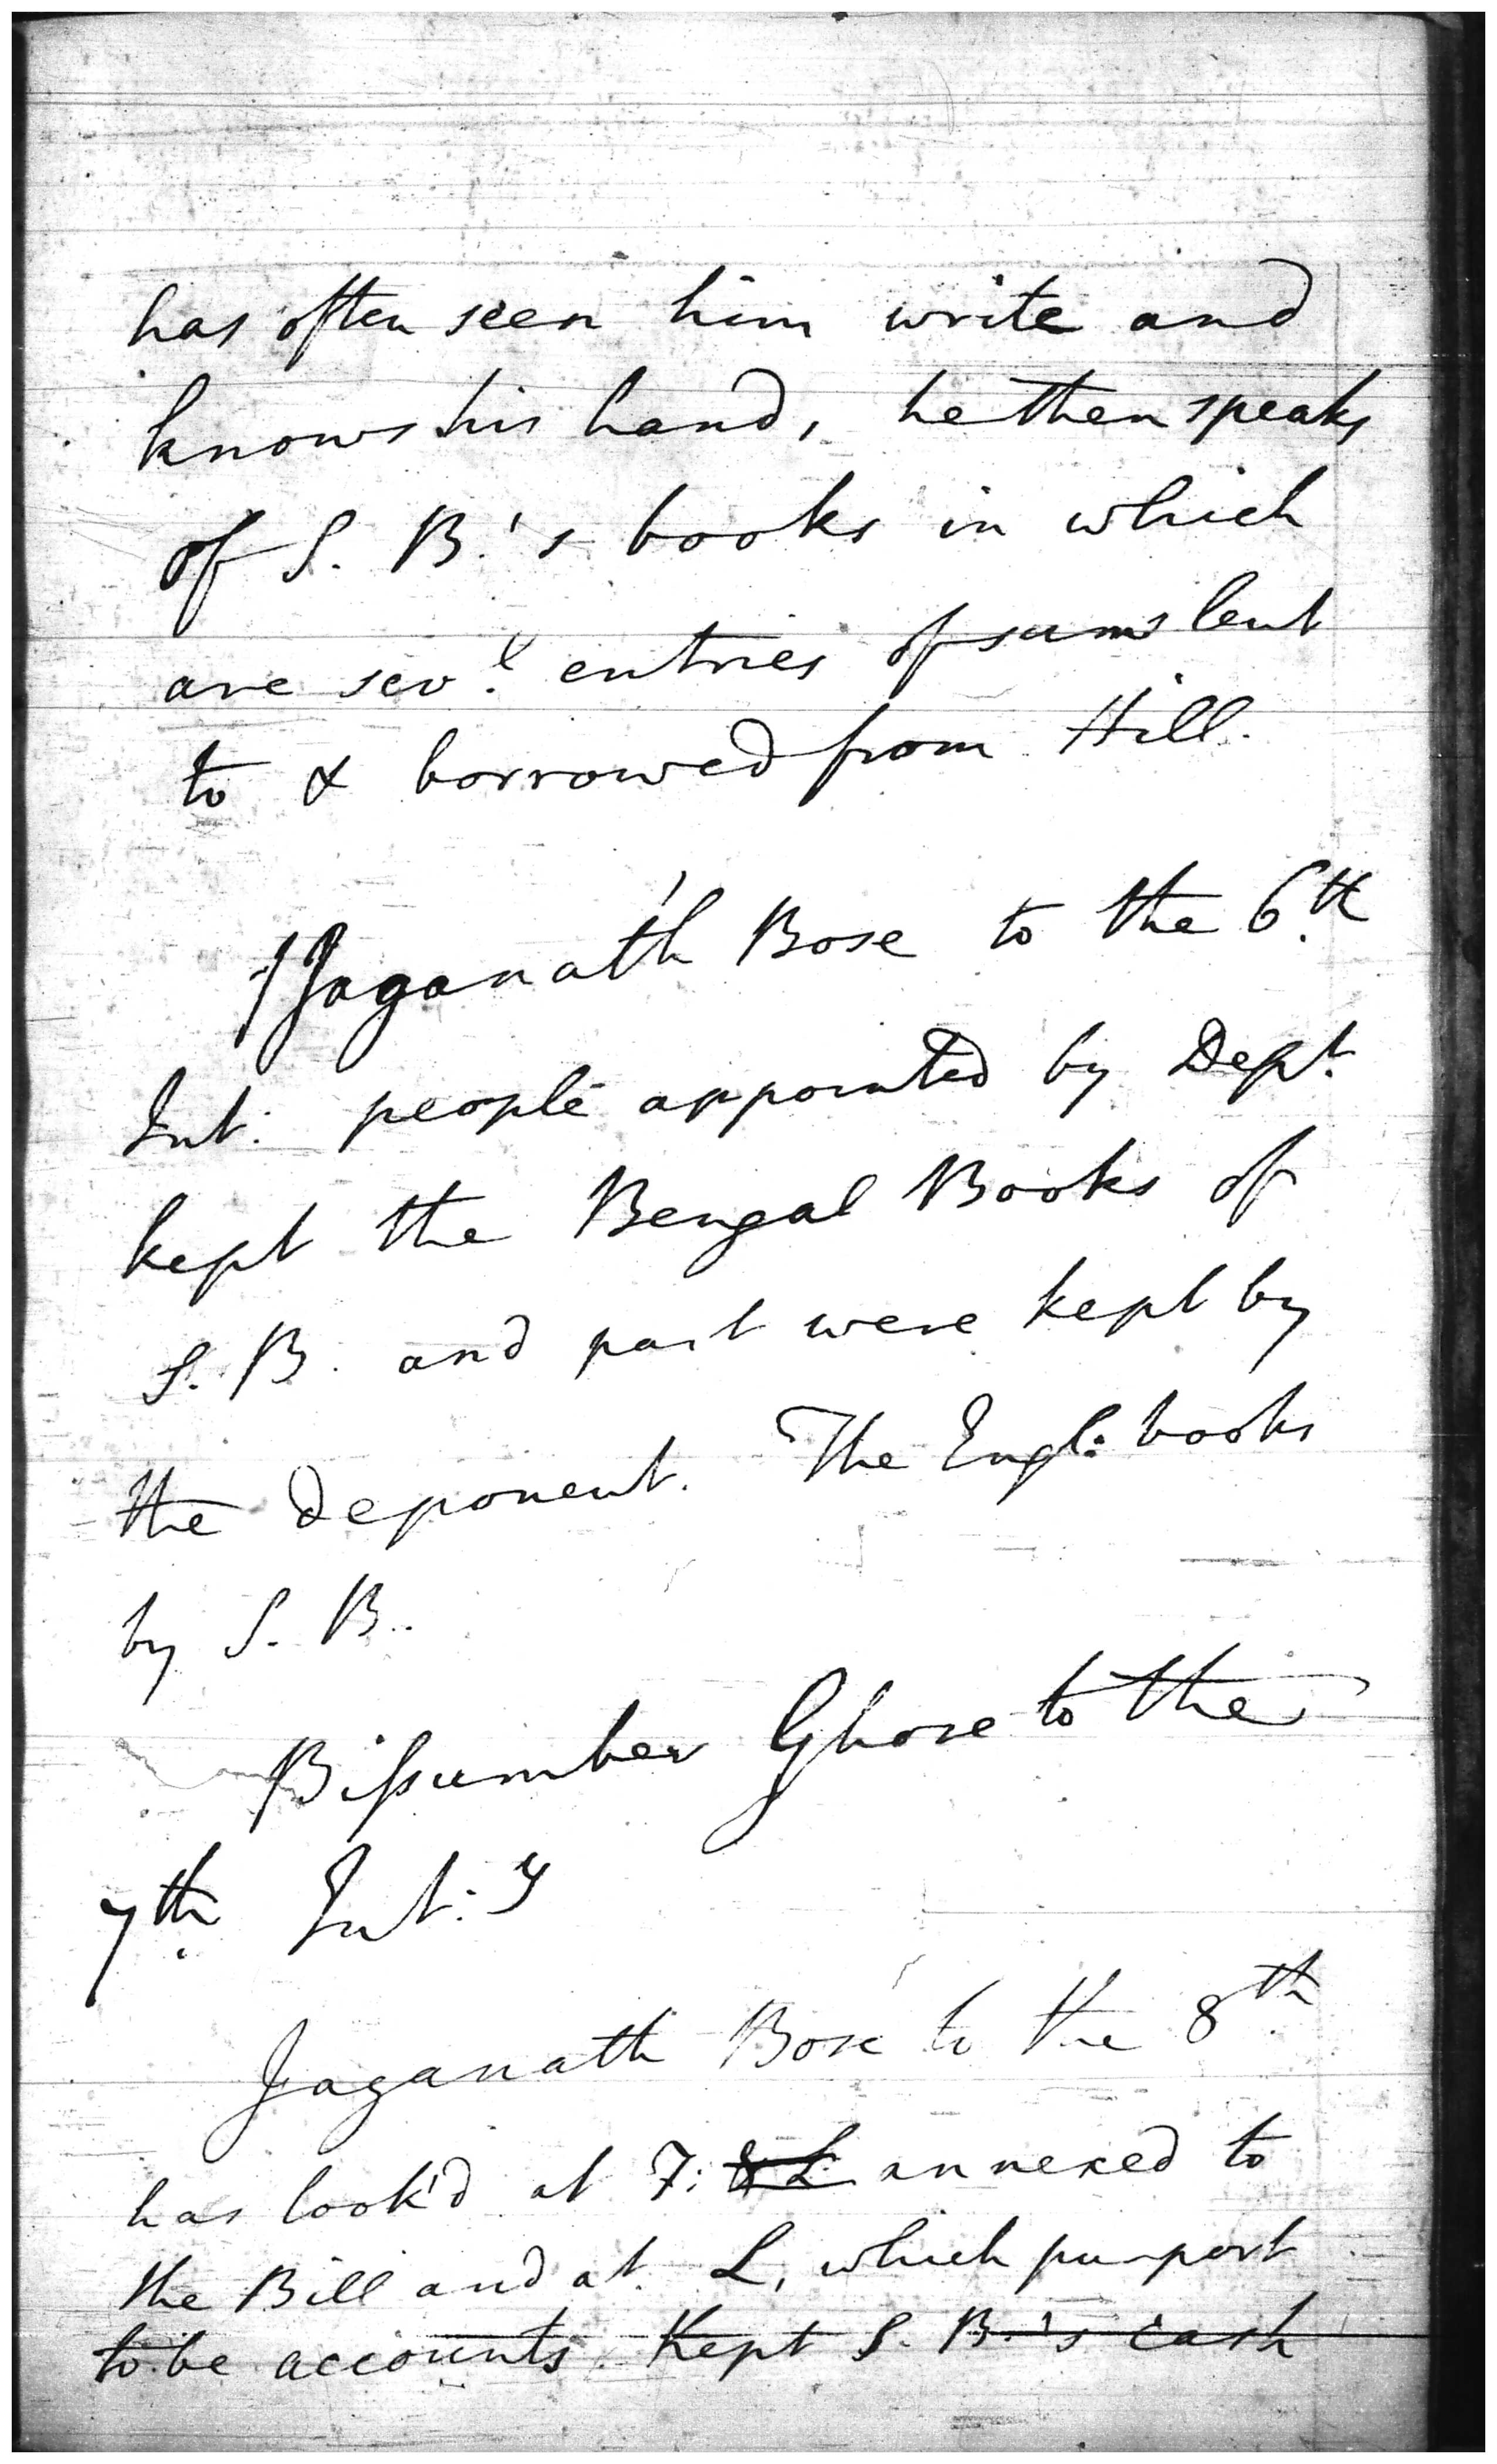 has often seen him write and
knows his hand, he then speaks
of S. B.'s books in which
are sev.l entries of sums lent
to & borrowed from Hill.
Jaganath Bose to the 6.th
Int. people appointed by Dep.t
kept the Bengal Books of
S. B. and part were kept by
the deponent. The Engl: books
by S. B.
Bissumber Ghose to the
7th Int:y
Jaganath Bose to the 8th
has look'd at F: & L annexed to
the Bill and at L, which purport
to be accounts. Kept S. B.'s cash